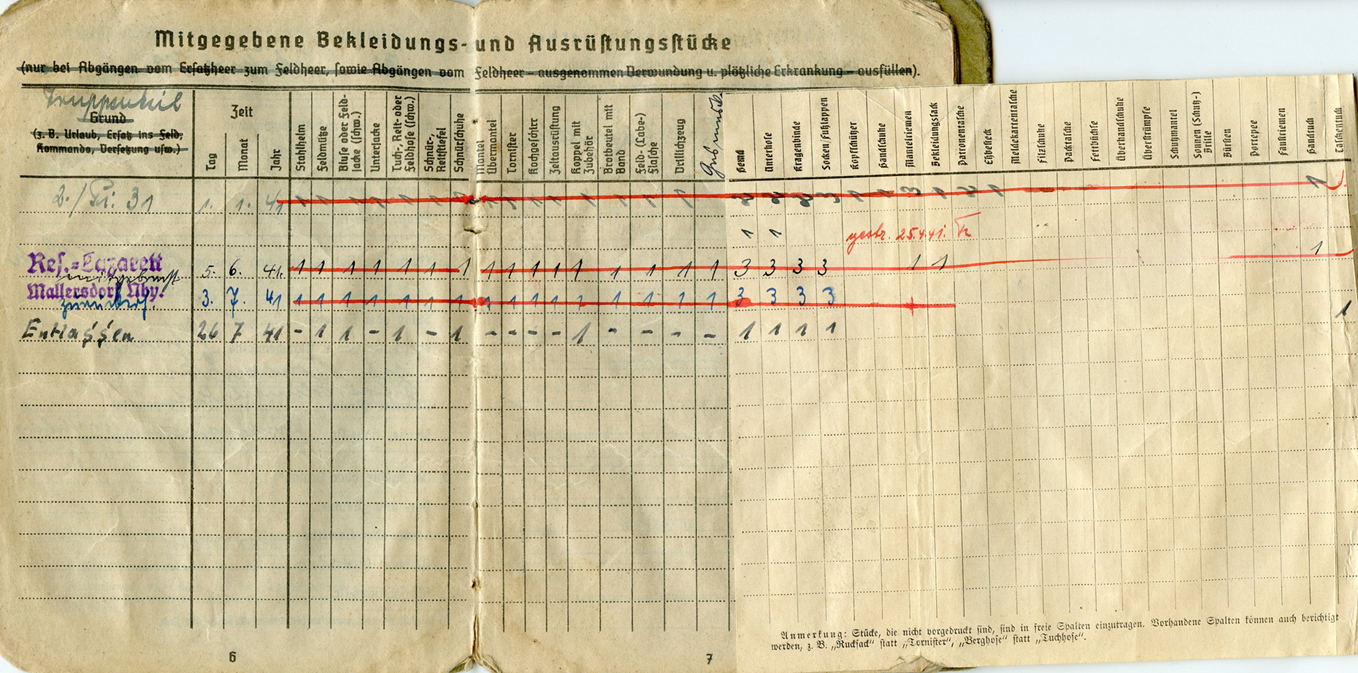 Mitgegebene Bekleidungs- und Ausrüstungsstücke
(nur bei Abgängen vom Ersatzheer zum Feldheer, sowie Abgängen vom Feldheer – ausgenommen Verwundung u. plötzliche Erkrankung – ausfüllen).
Truppenteil
Grund
(z. B. Urlaub, Ersatz ins Feld,
Kommando, Versetzung usw.)
Zeit
Tag
Monat
Jahr
Stahlhelm
Feldmütze
Bluse oder Feld-
jacke (schw.)
Unterjacke
Tuch-, Reit- oder
Feldhose (schw.)
Schnür-,
Reitstiefel
Schnürschuhe
Mantel
Übermantel
Tornister
Kochgeschirr
Zeltausrüstung
Koppel mit
Zubehör
Brotbeutel mit
Band
Feld- (Labe-)
Flasche
Drillichzeug
Hemd
Unterhose
Kragenbinde
Socken/Fußlappen
Kopfschützer
Handschuhe
Mantelriemen
Bekleidungssack
Patronentasche
Eßbesteck
Meldekartentasche
Filzschuhe
Packtasche
Fettbüchse
Überhandschuhe
Überstrümpfe
Schutzmantel
Sonnen (Schutz-)
Brille
Bürsten
Portepee
Faustriemen
Handtuch
Taschentuch
2./Pi. 31 1. 1. 41
1 1 gestr. 25.4.41.
Res.-Lazarett 5. 6. 41. 1 1 1 1 1 1 1 1 1 1 1 1 1 1 1 1 3 3 3 3 1 1 1
Mallersdorf Nby. 3. 7. 41 1 1 1 1 1 1 1 1 1 1 1 1 1 1 1 1 3 3 3 3 1
Entlassen 26 7 41 – 1 1 – 1 – 1 – – – – 1 – – – – – 1 1 1 1
Anmerkung: Stücke, die nicht vorgedruckt sind, sind in freie Spalten einzutragen. Vorhandene Spalten können auch berichtigt
werden, z. B. „Rucksack" statt „Tornister", „Berghose" statt „Tuchhose".
6
7